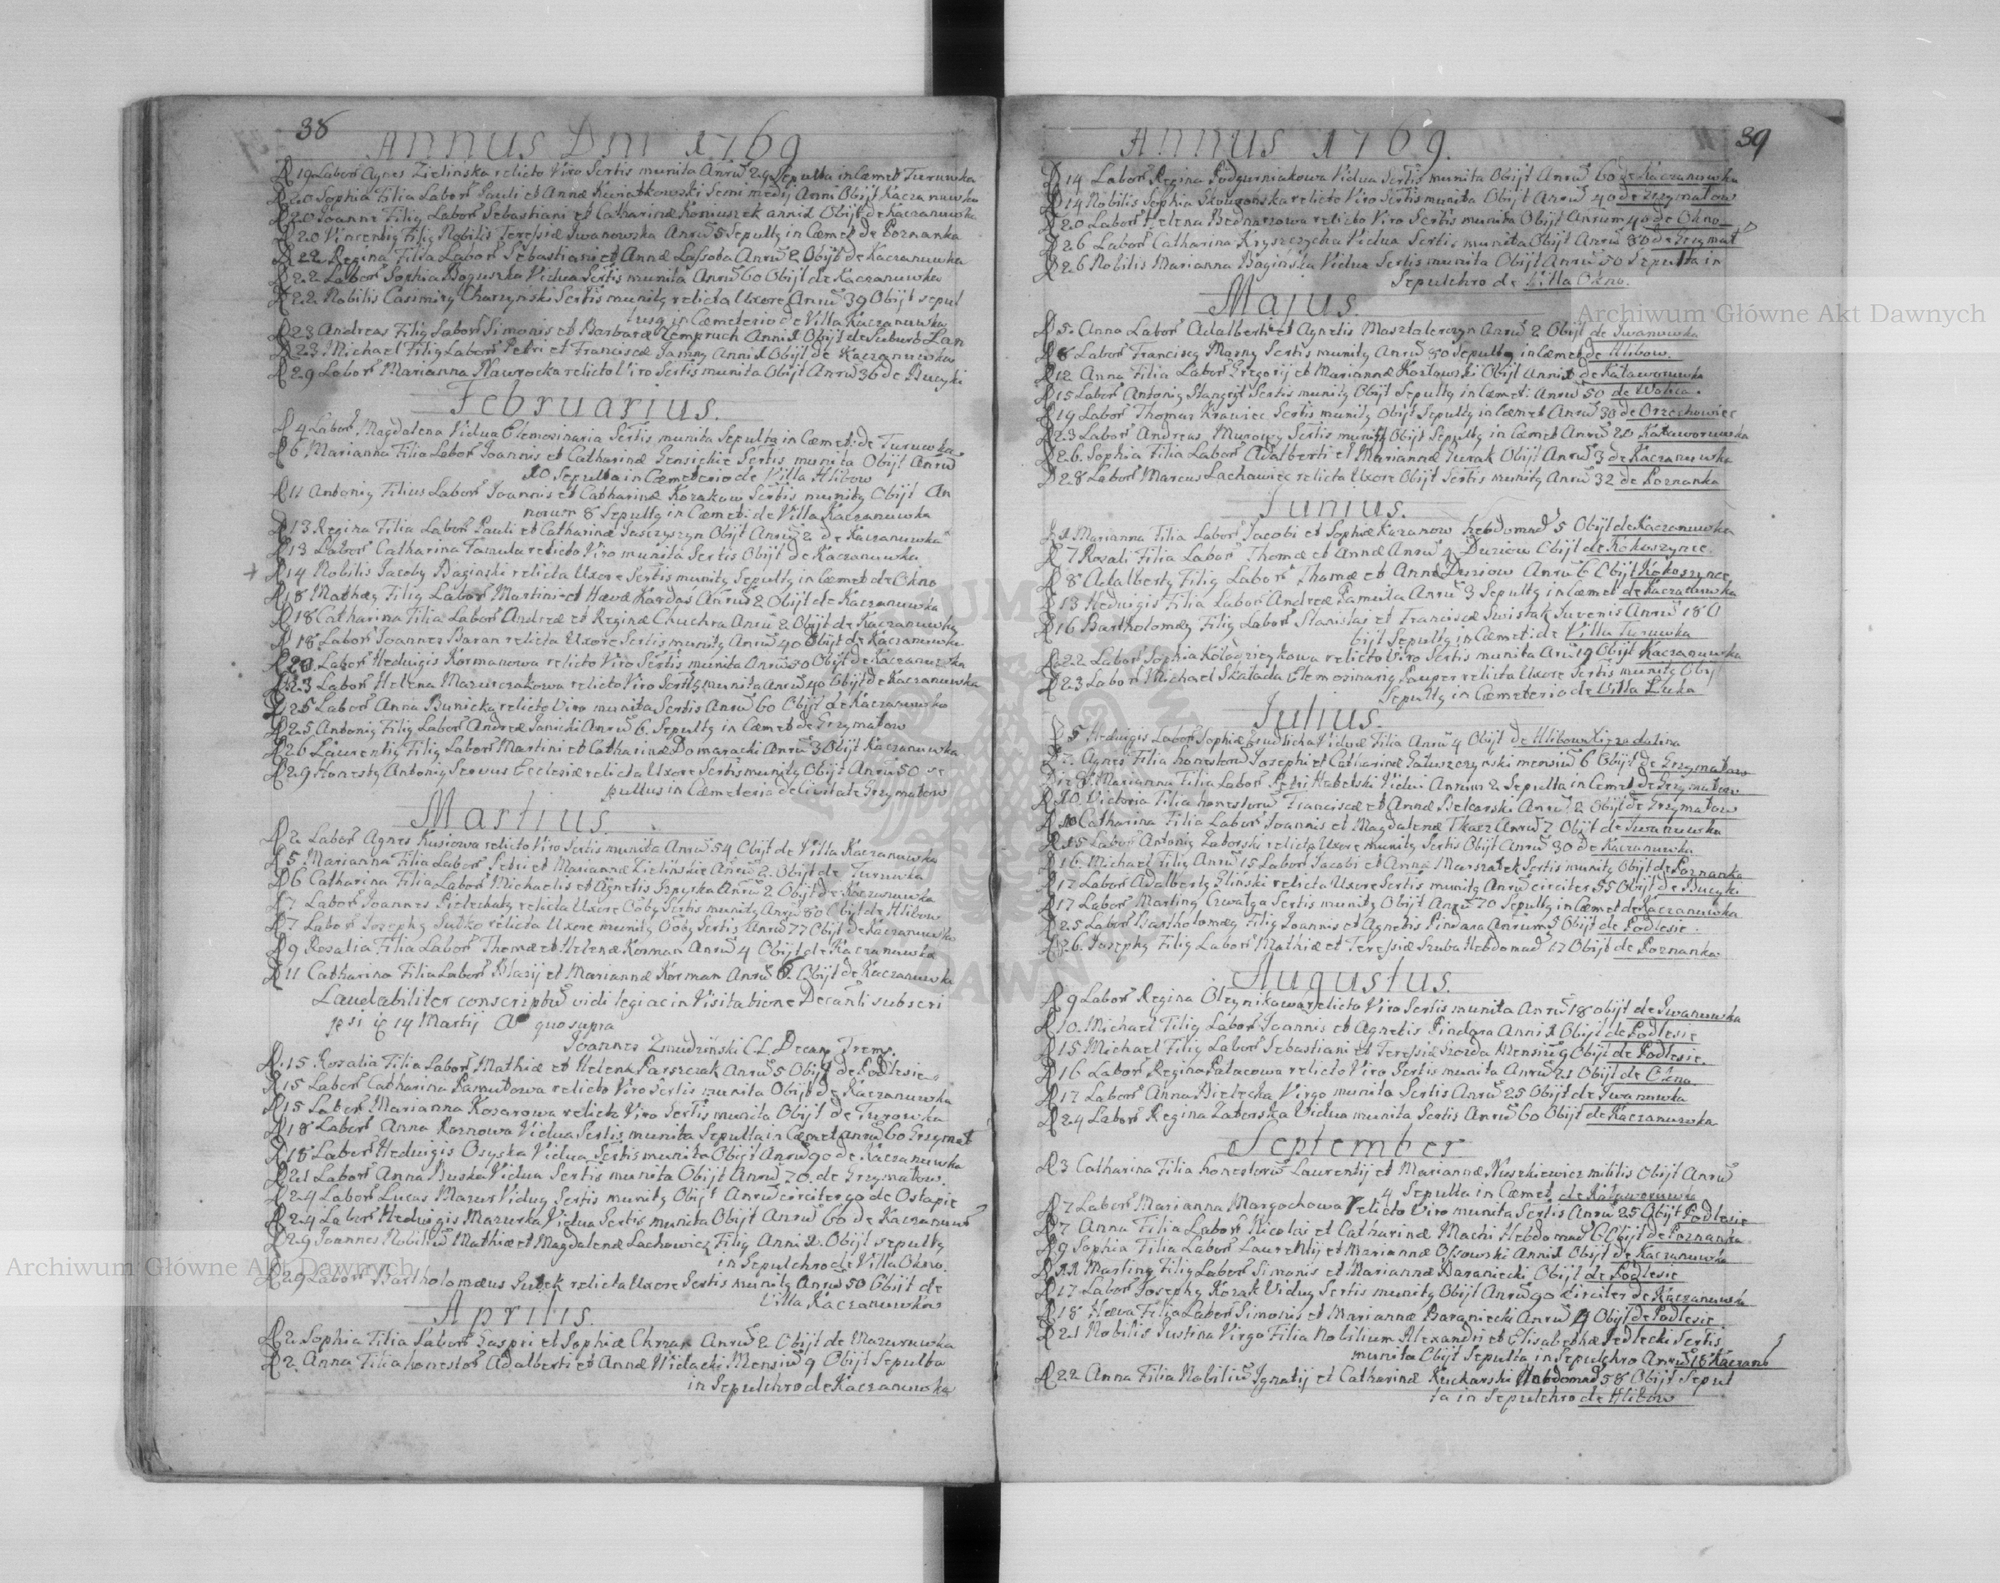 38
Annus Dni 1769
D 19 Labor Agnes Zielinska relicto Viro Sertis munita Annu 29 Sepulta in Cæmet Turuwka
D 20 Sophia Filia Labor Pauli et Annæ Kwiatkowski Semi medij Anni Obijt Kaczanuwka
D 20 Joanne Filig Labor Sebastiani et Catharinæ Koniuszek anni 1 Obijt de Kaczanuwka
D 20 Vincentig Filig Nobilis Teressiæ Jwanowska Annu 5 Sepultg in Cæmet de Poznanka
D 22 Regina Filia Labor Sebastiani et Annæ Lassoba Annu 2 Obijt de Kaczanuwka
D 22 Labor Sophia Boguszka Vidua Sertis munita Annu 60 Obijt de Kaczanuwka
D 22 Nobilis Casimirg Charzynski Sertis munitg relicta Uxore Annu 39 Obijt sepul
tusq in Cæmeterio de Villa Kaczanuwka
D 23 Andreas Filig Labor Simonis et Barbaræ Zempruch Anni 1 Obijt de Suburb Zan
D 23 Michael Filig Labor Petri et Franciscæ Jasiny Anni 1 Obijt de Kaczanuwka
D 29 Labor Marianna Nawrocka relicto Viro Sertis munita Obijt Annu 36 de Bucyki
Februarius.
D 4 Labor Magdalena Vidua Elemosinaria Sertis munita Sepulta in Cæmet: de Turuwka
D 6 Marianna Filia Labor Joannis et Catharinæ Gensickie Sertis munita Obijt Annu
20 Sepulta in Cæmeterio de Villa Hlibow
D 11 Antonig Filius Labor Joannis et Catharinæ Kozakow Sertis munitg Obijt An
norum 8 Sepultg in Cæmet: de Villa Kaczanuwka
D 13 Regina Filia Labor Pauli et Catharinæ Jaszczyszyn Obijt Annu 2 de Kaczanuwka
D 13 Labor Catharina Faszula relicto Viro munita Sertis Obijt de Kaczanuwka
D 14 Nobilis Jacobg Baginski relicta Uxore Sertis munitg Sepultg in Cæmet de Okno
D 18 Mathæg Filig Labor Martini et Hævæ Kardaś Annu 2 Obijt de Kaczanuwka
D 18 Catharina Filia Labor Andreæ et Reginæ Chuchra Annu 2 Obijt de Kaczanuwka
D 18 Labor Joannes Baran relicta Uxore Sertis munitg Annu 40 Obijt de Kaczanuwka
D 20 Labor Hedwigis Kormanowa relicto Viro Sertis munita Annu 50 Obijt de Kaczanuwka
D 23 Labor Helena Mazurczakowa relicto Viro Sertis munita Annu 40 Obijt de Kaczanuwka
D 25 Labor Anna Bunicka relicto Viro munita Sertis Annu 60 Obijt de Kaczanuwka
D 25 Antonig Filig Labor Andreæ Janicki Annu 6. Sepultg in Cæmet de Grzymałow
D 26 Laurentig Filig Labor Martini et Catharinæ Domaracki Annu 3 Obijt Kaczanuwka
D 29 Honestg Antonig Servus Ecclesiæ relicta Uxore Sertis munitg Obijt Annu 50 se
pultus in Cæmeterio de Civitate Grzymałow
Martius.
D 2 Labor Agnes Kusiowa relicto Viro Sertis munita Annu 54 Obijt de Villa Kaczanuwka
D 5 Marianna Filia Labor Petri et Mariannæ Zielinskie Annu 2. Obijt de Turuwka
D 6 Catharina Filia Labor Michaelis et Agnetis Szpyrka Annu 2 Obijt de Kaczanuwka
D 7 Labor Joannes Pielechatg relicta Uxore Ooby Sertis munitg Annu 80 Obijt de Hlibow
D 7 Labor Josephg Sutko relicta Uxore munitg Ooby Sertis Annu 77 Obijt de Kaczanuwka
D 9 Rosalia Filia Labor Thomæ et Helenæ Korman Annu 4 Obijt de Kaczanuwka
D 11 Catharina Filia Labor Blasij et Mariannæ Korman Annu 6. Obijt de Kaczanuwka
Laudabiliter conscriptu vidi legi ac in Visitatione Decanli subscri
psi 14 Martij Ao quo supra
Joannes Zmudzinski C L, Decan Trem.
D. 15 Rosalia Filia Labor Mathiæ et Helenæ Parszczak Annu 5 Obijt de Podlesie
D 15 Labor Catharina Pamułowa relicto Viro Sertis munita Obijt de Kaczanuwka
D 15 Labor Marianna Kosarowa relicto Viro Sertis munita Obijt de Turowka
D 18 Labor Anna Kornowa Vidua Sertis munita Sepulta in Cæmet annu 60 Grzymał
D 18 Labor Hedwigis Osyska Vidua Sertis munita Obijt Annu 90 de Kaczanuwka
D 21 Labor Anna Buska Vidua Sertis munita Obijt Annu 70. de Grzymałow.
D 24 Labor Lucas Mazur Vidug Sertis munitg Obijt Annu circiter 90 de Ostapie
D 24 Labor Hedwigis Mazurka Vidua Sertis munita Obijt Annu 60 de Kaczanuw
D 29 Joannes Nobiliu Mathiæ et Magdalenæ Lachowicz Filig Anni 1. Obijt sepultg
in Sepulchro de Villa Okno.
D 29 Labor Bartholomæus Sutek relicta Uxore Sertis munitg Annu 50 Obijt de
Villa Kaczanuwka
Aprilis.
D 2. Sophia Filia Labor Gaspri et Sophiæ Chrnar Annu 2 Obijt de Mazuruwka
D 2 Anna Filia honestor Adalberti et Annæ Widacki Mensiu 9 Obijt Sepulta
in Sepulchro de Kaczanuwka
39
Annus 1769.
D 14 Labor Regina Podgurniakowa Vidua Sertis munita Obijt Annu 60 de Kaczanuwka
D 14 Nobilis Sophia Skowronska relicto Viro Sertis munita Obijt Annu 40 de Grzymałow
D 20 Labor Helena Bednarzowa relicto Viro Sertis munita Obijt Annrum 40 de Okno
D 26 Labor Catharina Kryszczycha Vidua Sertis munita Obijt Annu 80 de Grzymał
D 26 Nobilis Marianna Baginska Vidua Sertis munita Obijt Annu 50 Sepulta in
Sepulchro de Villa Okno.
Majus.
D 5. Anna Labor Adalberti et Agnetis Masztalerczyn Annu 2 Obijt de Jwanuwka
D 8 Labor Franciscg Marny Sertis munitg Annu 30 Sepultg in Cæmet de Hlibow.
D 12 Anna Filia Labor Gregorij et Mariannæ Kozłowski Obijt Anni 1 de Kaławoruwka
D 15 Labor Antonig Stangryt Sertis munitg Obijt Sepultg in Cæmet: Annu 50 de Wolica.
D 19 Labor Thomas Krawiec Sertis munitg Obijt Sepultg in Cæmet Annu 30 de Orzechowiec
D 23 Labor Andreas Murowy Sertis munitg Obijt Sepultg in Cæmet Annu 20 Kaławoruwka
D 26. Sophia Filia Labor Adalberti et Mariannæ Zurak Obijt Annu 3 de Kaczanuwka
D 28 Labor Marcus Lachowiec relicta Uxore Obijt Sertis munitg Annu 32 de Poznanka
Junius.
D 1 Marianna Filia Labor Jacobi et Sophiæ Kazanow hebdomad 5 Obijt de Kaczanuwka
D 7 Rozali Filia Labor Thomæ et Annæ Annu 4 Duziow Obijt de Kokoszynce.
D 8 Adalbertg Filig Labor Thomæ et Annæ Duziow Annu 6 Obijt Kokoszynce
D 13 Hedwigis Filia Labor Andreæ Pamuła Annu 3 Sepultg in Cæmet de Kaczanuwka
D 16 Bartholomæg Filig Labor Stanislai et Franciscæ Swistak Juvenis Annu 18 O
bijt Sepultg in Cæmet: de Villa Turuwka
D 22 Labor Sophia Kołodzieykowa relicto Viro Sertis munita Anu 19 Obijt Kaczanuwka
D 23 Labor Michael Skałada Elemosinarig pauper relicta Uxore Sertis munitg Obijt
Sepultg in Cæmeterio de Villa Łuka
Julius.
D 5 Hedwigis Labor Sophiæ Viduæ Filia Annu 4 Obijt de Hlibow
D 7. Agnes Filia honestoru Josephi et Catharinæ Gałuszczynski mensiu 6 Obijt de Grzymałow
D 8. Marianna Filia Labor Petri Habelski Vidui Annum 2 Sepulta in Cæmet de Grzymałow
D 10 Victoria Filia honestoru Franciscæ et Annæ Bielcarski Annu 2 Obijt de Grzymałow
D 10 Catharina Filia Labor Joannis et Magdalenæ Tkacz Annu 7 Obijt de Jwanuwka
D 15 Labor Antonig Zaborski relicta Uxore munitg Sertis Obijt Annu 30 de Kaczanuwka
D 16 Michael Filig Annu 15 Labor Jacobi et Annæ Marszałek Sertis munitg Obijt de Poznanka
D 17 Labor Adalbertg Glinski relicta Uxore Sertis munitg Annu circiter 55 Obijt de Bucyki
D 17 Labor Marting Czwałga Sertis munitg Obijt Annu 70 Sepultg in Cæmet de Kaczanuwka
D 25 Labor Bartholomæg Filig Joannis et Agnetis Pindara Annrum 3 Obijt de Podlesie.
D 26. Josephg Filig Labor Mathiæ et Teressiæ Szuba Hebdomad 17 Obijt de Poznanka
Augustus.
D 9 Labor Regina Olzynikowa relicto Viro Sertis munita Annu 18 obijt de Jwanuwka
D 10. Michael Filig Labor Joannis et Agnetis Pindara Anni 1 Obijt de Podlesie
D 15 Michael Filig Labor Sebastiani et Teressiæ Szozda Mensiu 9 Obijt de Podlesie.
D 16 Labor Regina Pałacowa relicto Viro Sertis munita Annu 21 Obijt de Okno
D 17 Labor Anna Bielecka Virgo munita Sertis Annu 25 Obijt de Jwanuwka
D 24 Labor Regina Zaborska Vidua munita Sertis Annu 60 Obijt de Kaczanuwka
September
D 3 Catharina Filia honestoru Laurentij et Mariannæ Nuszkiewicz militis Obijt Annu
4 Sepulta in Cæmet de Kaławoruwka
D 7 Labor Marianna Margochowa relicto Viro munita Sertis Annu 25 Obijt Podlesie
D 7 Anna Filia Labor Nicolai et Catharinæ Machi Hebdomad 6 Obijt de Poznanka
D 9 Sophia Filia Labor Laurentij et Mariannæ Ossowski Anni 1 Obijt de Kaczanuwka
D 11 Marting Filig Labor Simonis et Mariannæ Baraniecki Obijt de Podlesie
D 17 Labor Josephg Kozak Vidug Sertis munitg Obijt Annu 90 circiter de Kaczanuwka
D 18 Hæva Filia Labor Simonis et Mariannæ Baraniecki Annu 4 Obijt de Podlesie.
D 21 Nobilis Justina Virgo Filia Nobilium Alexandri et Elisabethæ Jedlecki Sertis
munita Obijt Sepulta in Sepulchro Annu 18 Kaczanó
D 22 Anna Filia Nobiliu Ignatij et Catharinæ Kucharski Hebdomad 58 Obijt Sepul
ta in Sepulchro de Hlibow
Archiwum Główne Akt Dawnych
Archiwum Główne Akt Dawnych